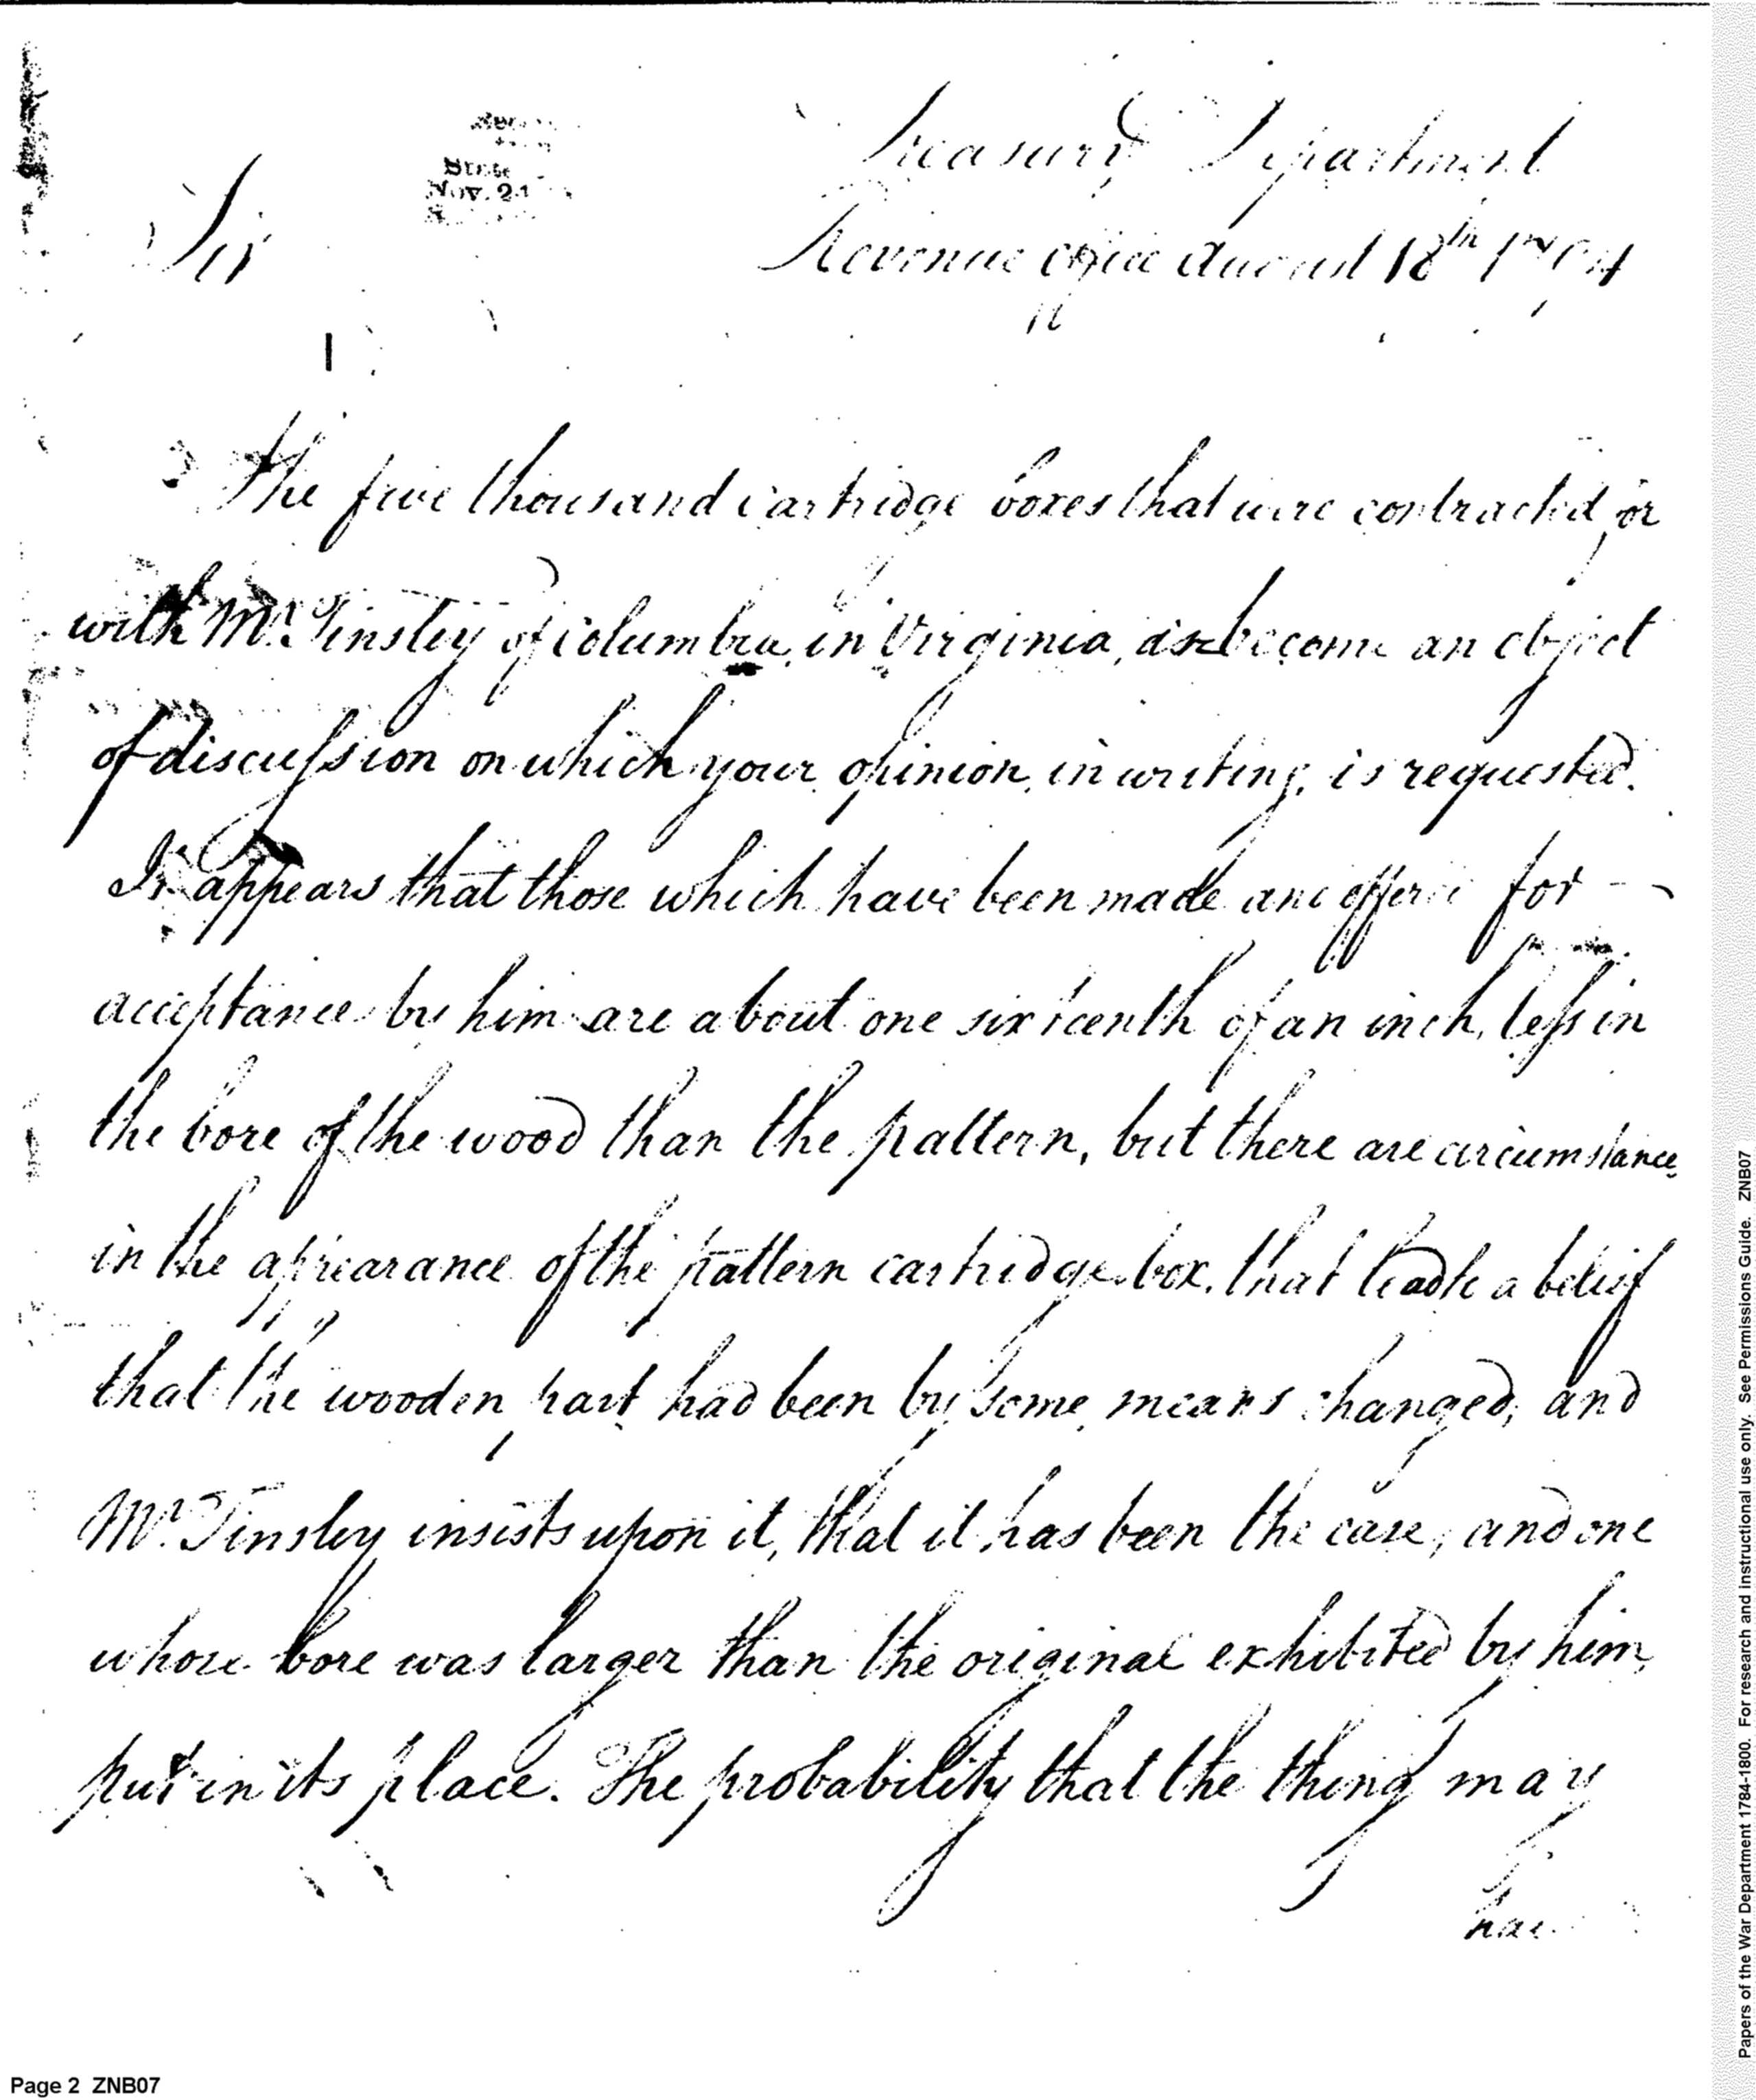 Treasury Department
Revenue Office August 18th 1794
Sir
State
Nov. 21
The five thousand cartridge boxes that were contracted for
with Mr. Tinsley of Columbia, in Virginia, has become an object
of discussion on which your opinion, in writing, is requested.
It appears that those which have been made and offered for
acceptance by him are about one sixteenth of an inch, less in
the bore of the wood than the pattern, but there are circumstances
in the appearance of the pattern cartridge box, that leadto a belief
that the wooden part had been by some means changed; and
Mr. Tinsley insists upon it, that it has been the case, and one
whose bore was larger than the original exhibited by him,
put in its place. The probability that the thing may
have
Page 2 ZNB07
Papers of the War Department 1784-1800. For research and instructional use only. See Permissions Guide. ZNB07